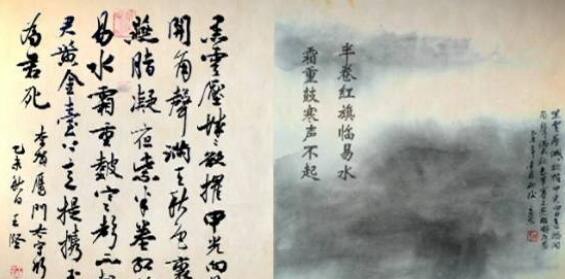 黑雲壓城城欲摧甲光向
開角聲滿天秋色裏
燕脂凝夜紫半卷紅
易水霜重鼓寒聲不
君黄金臺上意提攜玉
為君死
李賀雁門太守行
乙未秋日王
半卷红旗临易水
霜重鼓寒声不起